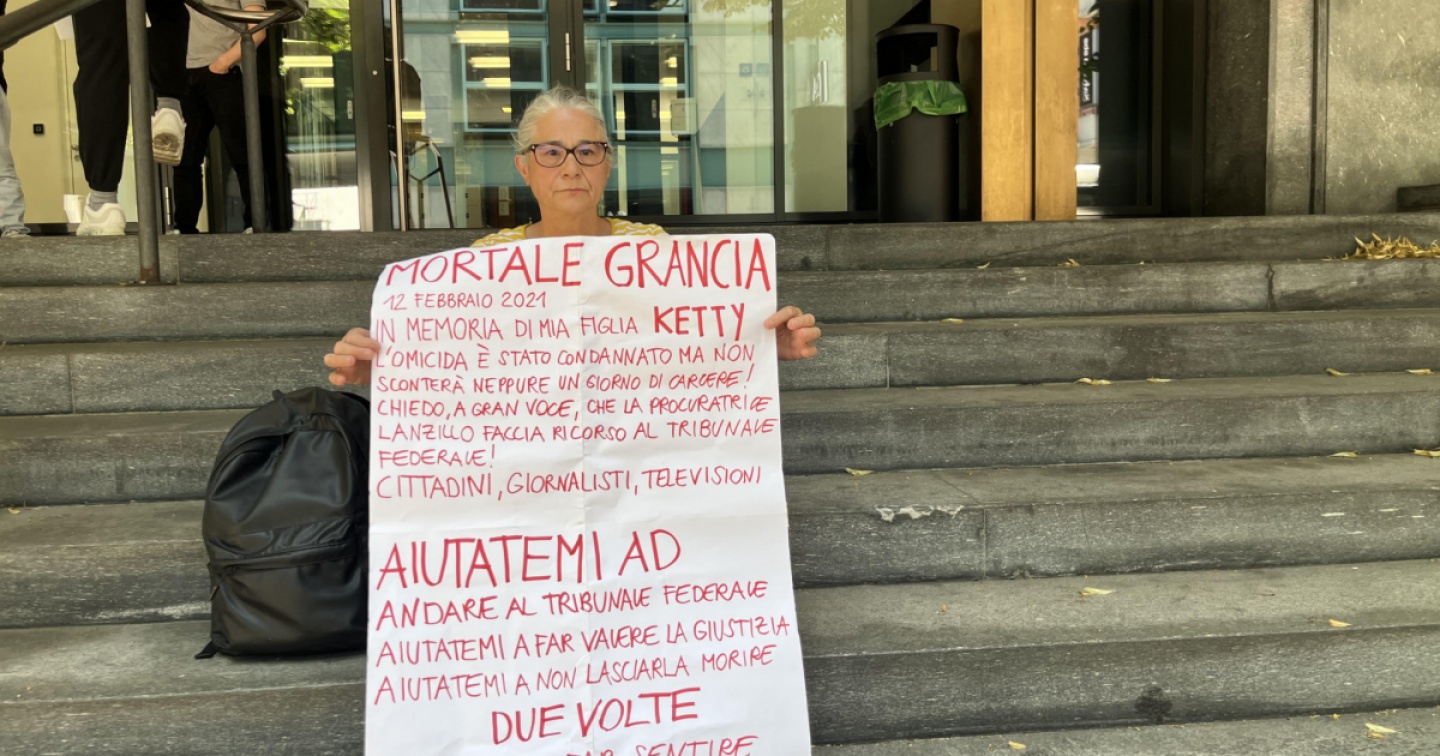 MORTALE GRANCIA
12 FEBBRAIO 2021
IN MEMORIA DI MIA FIGLIA KETTY
L'OMICIDA È STATO CONDANNATO MA NON
SCONTERÀ NEPPURE UN GIORNO DI CARCERE!
CHIEDO, A GRAN VOCE, CHE LA PROCURATRICE
LANZILLO FACCIA RICORSO AL TRIBUNALE
FEDERALE!
CITTADINI, GIORNALISTI, TELEVISIONI
AIUTATEMI AD
ANDARE AL TRIBUNALE FEDERALE
AIUTATEMI A FAR VALERE LA GIUSTIZIA
AIUTATEMI A NON LASCIARLA MORIRE
DUE VOLTE
FAR SENTIRE